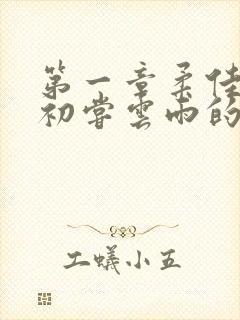 第一章柔佳
初尝云雨的
工蟻小五